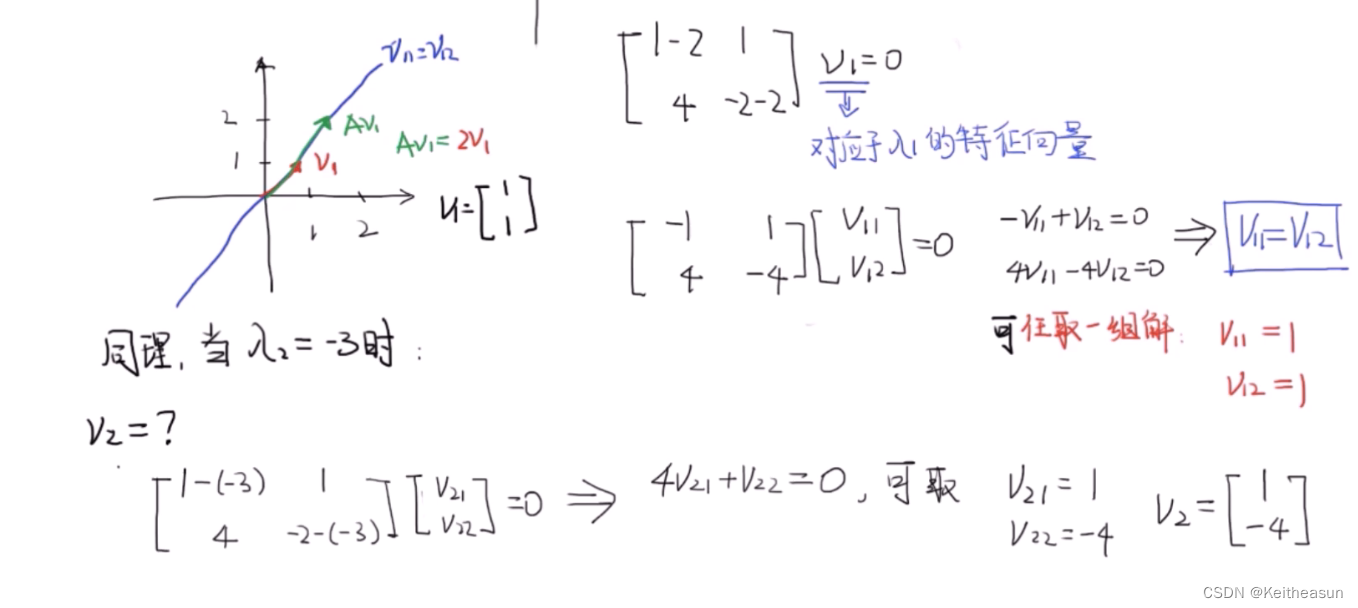 V₁₁=V₁₂
2
1
AV₁
V₁
1
2
AV₁=2V₁
V₁=[1 1]
[1-2 1
4 -2-2] V₁=0
对应于λ₁的特征向量
[-1 1
4 -4][V₁₁
V₁₂]=0
-V₁₁+V₁₂=0
4V₁₁-4V₁₂=0
⇒ V₁₁=V₁₂
可任取一组解:
V₁₁=1
V₁₂=1
同理,当λ₂=-3时:
V₂=?
[1-(-3) 1
4 -2-(-3)][V₂₁
V₂₂]=0 ⇒ 4V₂₁+V₂₂=0,可取
V₂₁=1
V₂₂=-4
V₂=[1
-4]
CSDN @Keitheasun